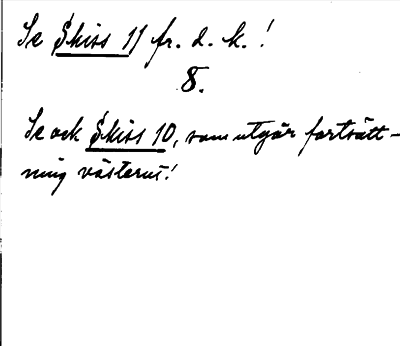 Se Skiss 11 fr. d. k.!
8.
Se ock Skiss 10, som utgör fortsätt-
ning västerut!